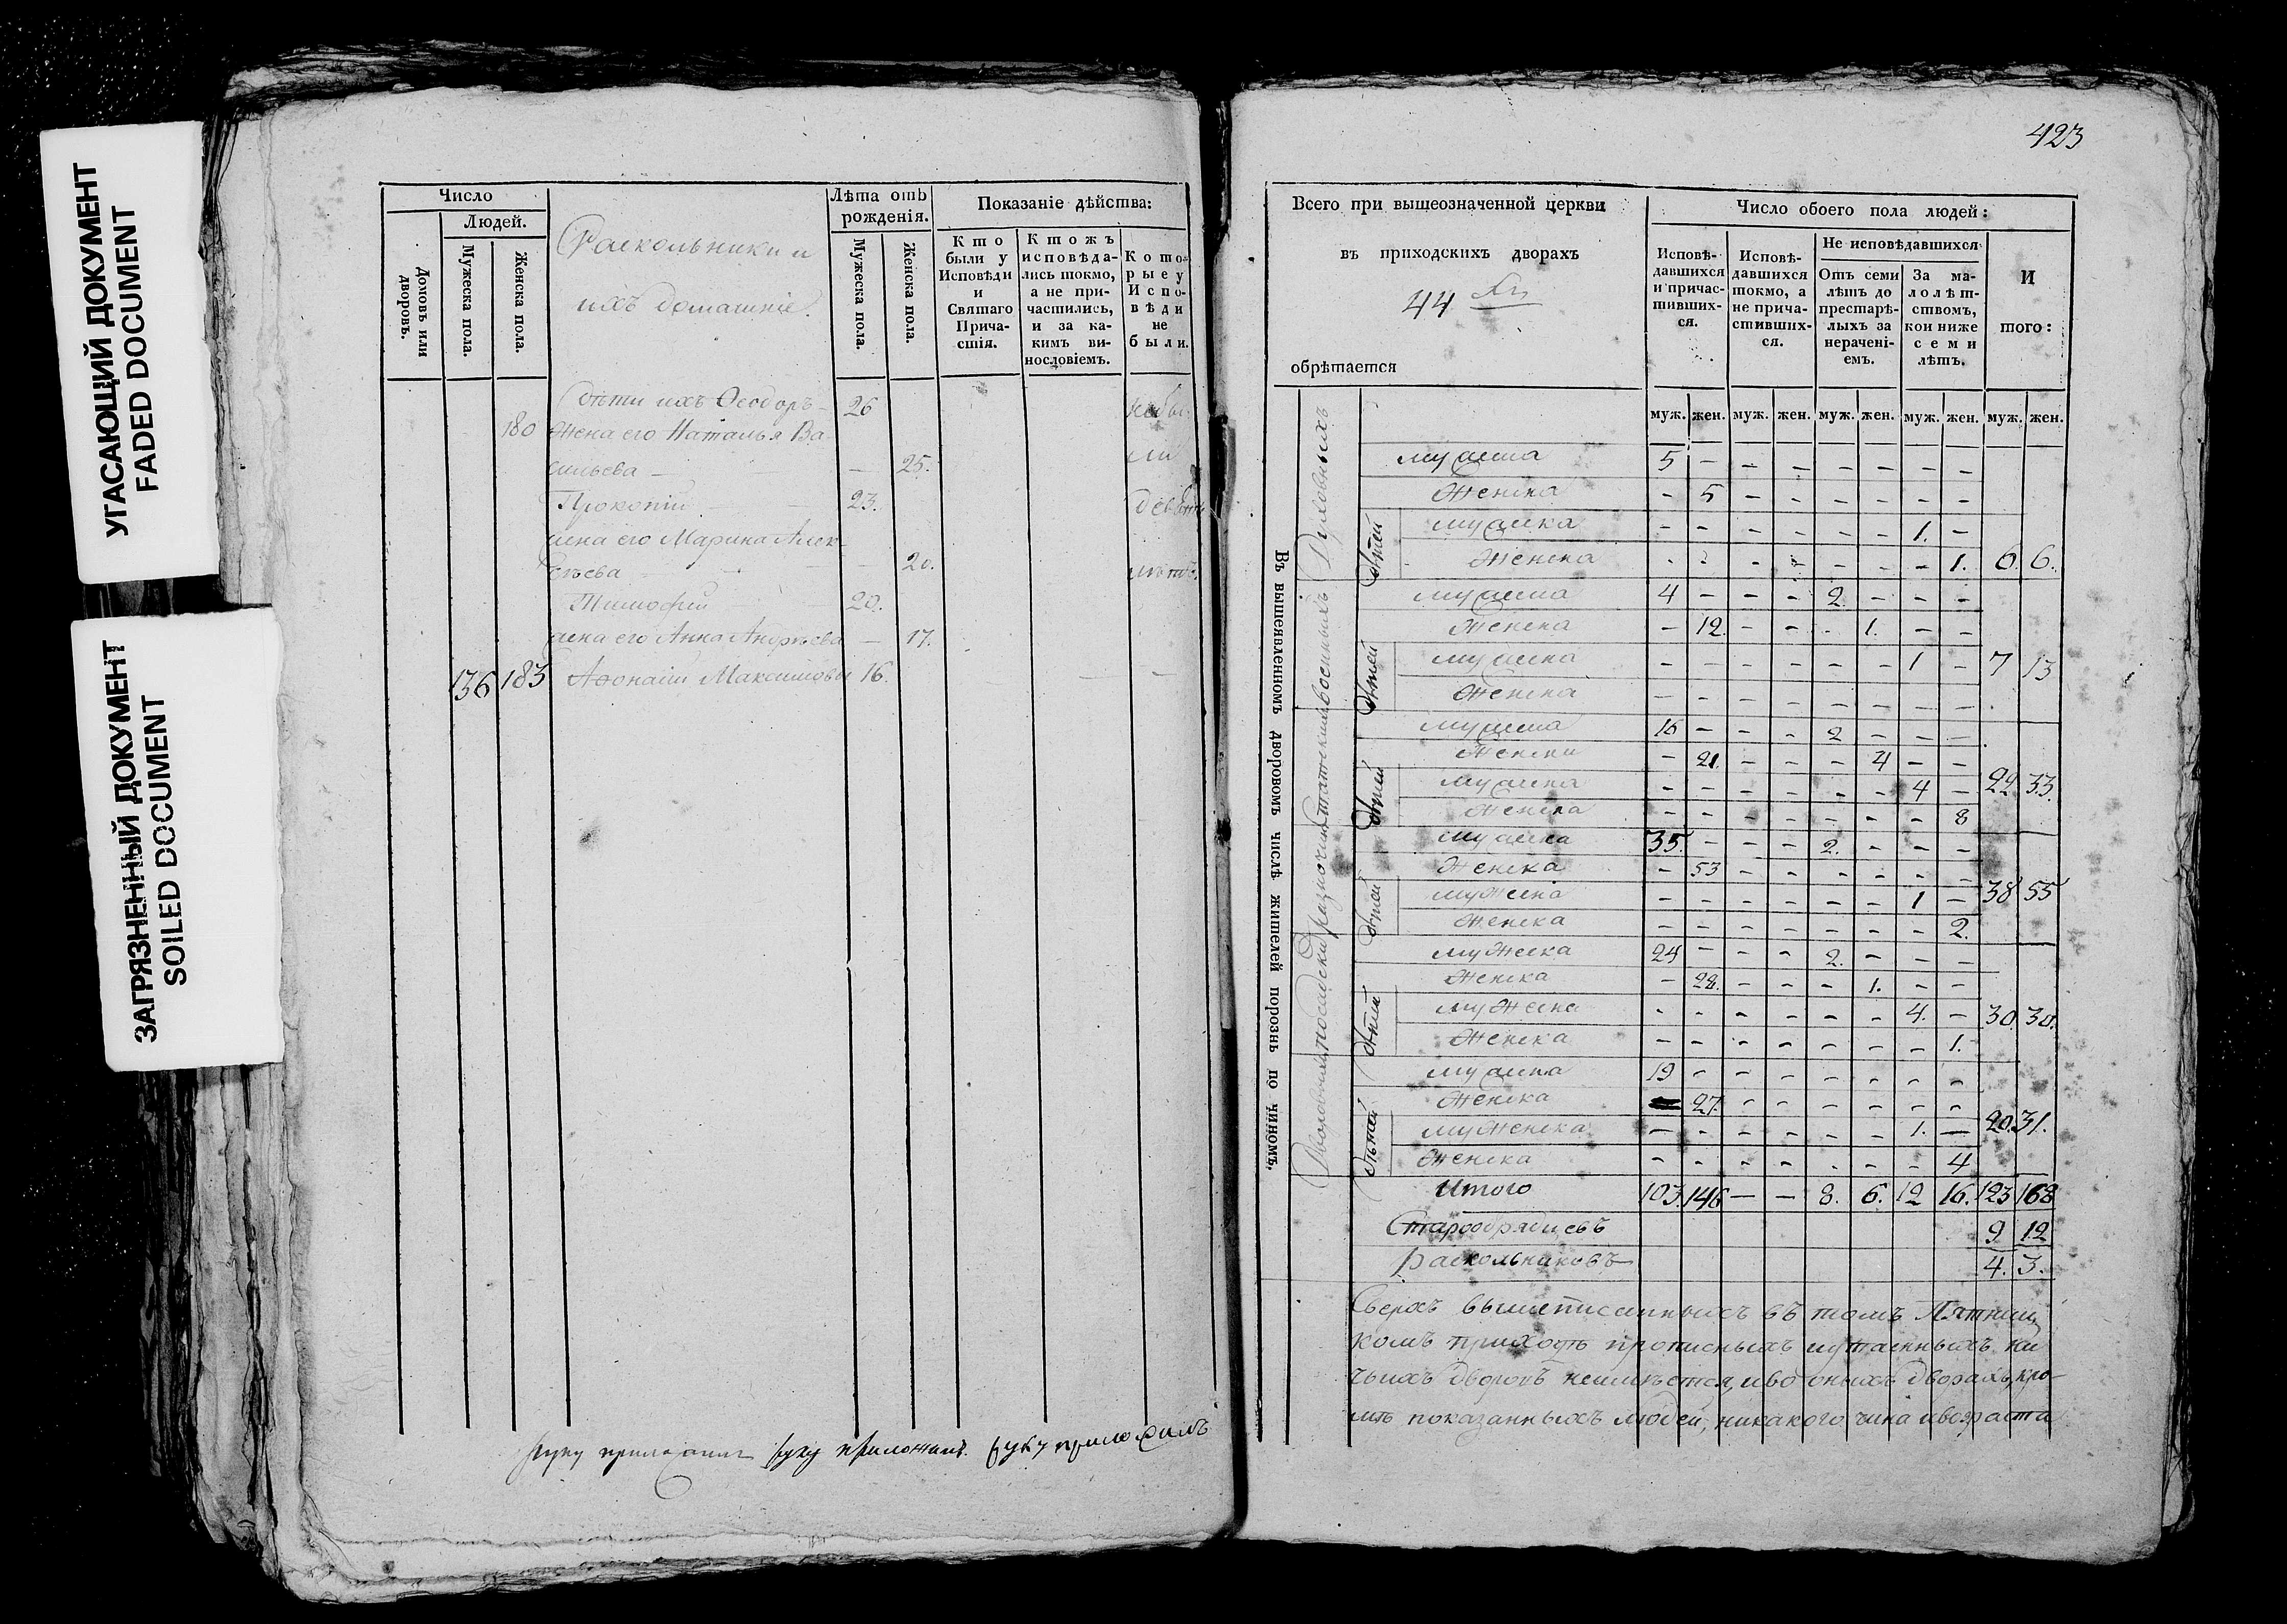 УГАСАЮЩИЙ ДОКУМЕНТ
FADED DOCUMENT
ЗАГРЯЗНЕННЫЙ ДОКУМЕНТ
SOILED DOCUMENT
Число
Людей.
Домовъ или дворовъ.
Мужеска пола.
Женска пола.
Раскольники и
ихъ домашніе.
Лѣта отъ рожденія.
Мужеска пола.
Женска пола.
Показаніе дѣйства:
Кто были у Исповѣди и Святаго Причастія.
Ктожъ исповѣдались токмо, а не причастились, и за какимъ винословіемъ.
Которые у Исповѣди не были.
Дѣти ихъ Ѳеодоръ 26 небы
180 Жена его Наталья Ва
сильева — — 25. ли
Прокопій 23.
жена его Марина Алек
сѣева — 20.
Тимофей 20.
жена его Анна Андреева — 17.
136 183 Афонасій Максимовъ 16.
руку приложилъ руку приложилъ. руку приложилъ
423
Всего при вышеозначенной церкви
въ приходскихъ дворахъ
44
обрѣтается
Число обоего пола людей:
Исповѣдавшихся и причастившихся.
Исповѣдавшихся токмо, а не причастившихся.
Не исповѣдавшихся
Отъ семи лѣтъ до престарѣлыхъ за нераченіемъ.
За малолѣтствомъ, кои ниже семи лѣтъ.
И того:
муж. жен. муж. жен. муж. жен. муж. жен. муж. жен.
Въ вышеявленномъ дворовомъ числѣ жителей порознь по чиномъ.
Духовныхъ
мужеска 5 — — — — — — —
Женска — 5 — — — — — —
Дѣтей
мужска — — — — — — 1. —
Женска - - - - - - - 1. 6. 6.
военныхъ
мужеска 4 — — — 2 — — —
Женска — 12. — — - 1. — —
Дѣтей
мужска — — — — — — 1 — 7 13
Женска — — — — — — — —
мужеска 16 — — - 2 — — —
Женски — 21. — — — 4 — —
Дѣтей
мужска — — — — — — 4 — 22. 33.
Женска — — — — — — — 8
мужска 35. — — — 2. — — —
Женска — 53 — — — — — —
Дѣтей
мужеска — — — — — — 1 — 38 55
Женска — — — — — — — 2.
мужеска 24 — — — 2. — — —
Женска — 28. — — — 1. — —
Дѣтей
мужеска - - — — — — 4. — 30. 30.
Женска — — — — — — — 1.
мужска 19 — — — — — — —
Женска — 27. — — — — — —
Дѣтей
мужеска — — — — — — 1. — 20. 31.
Женска — — — — — — — 4
Итого 103. 146 — — 8. 6. 12 16. 123 168
Старообрядцевъ 9 12
Раскольниковъ 4. 3.
Сверхъ вышеписанныхъ въ томъ Пятниц
комъ приходѣ прописныхъ и утаенныхъ ни
чьихъ дворовъ неимѣется, и во оныхъ дворахъ, кро-
мѣ показанныхъ людей, никакого чина и возраста